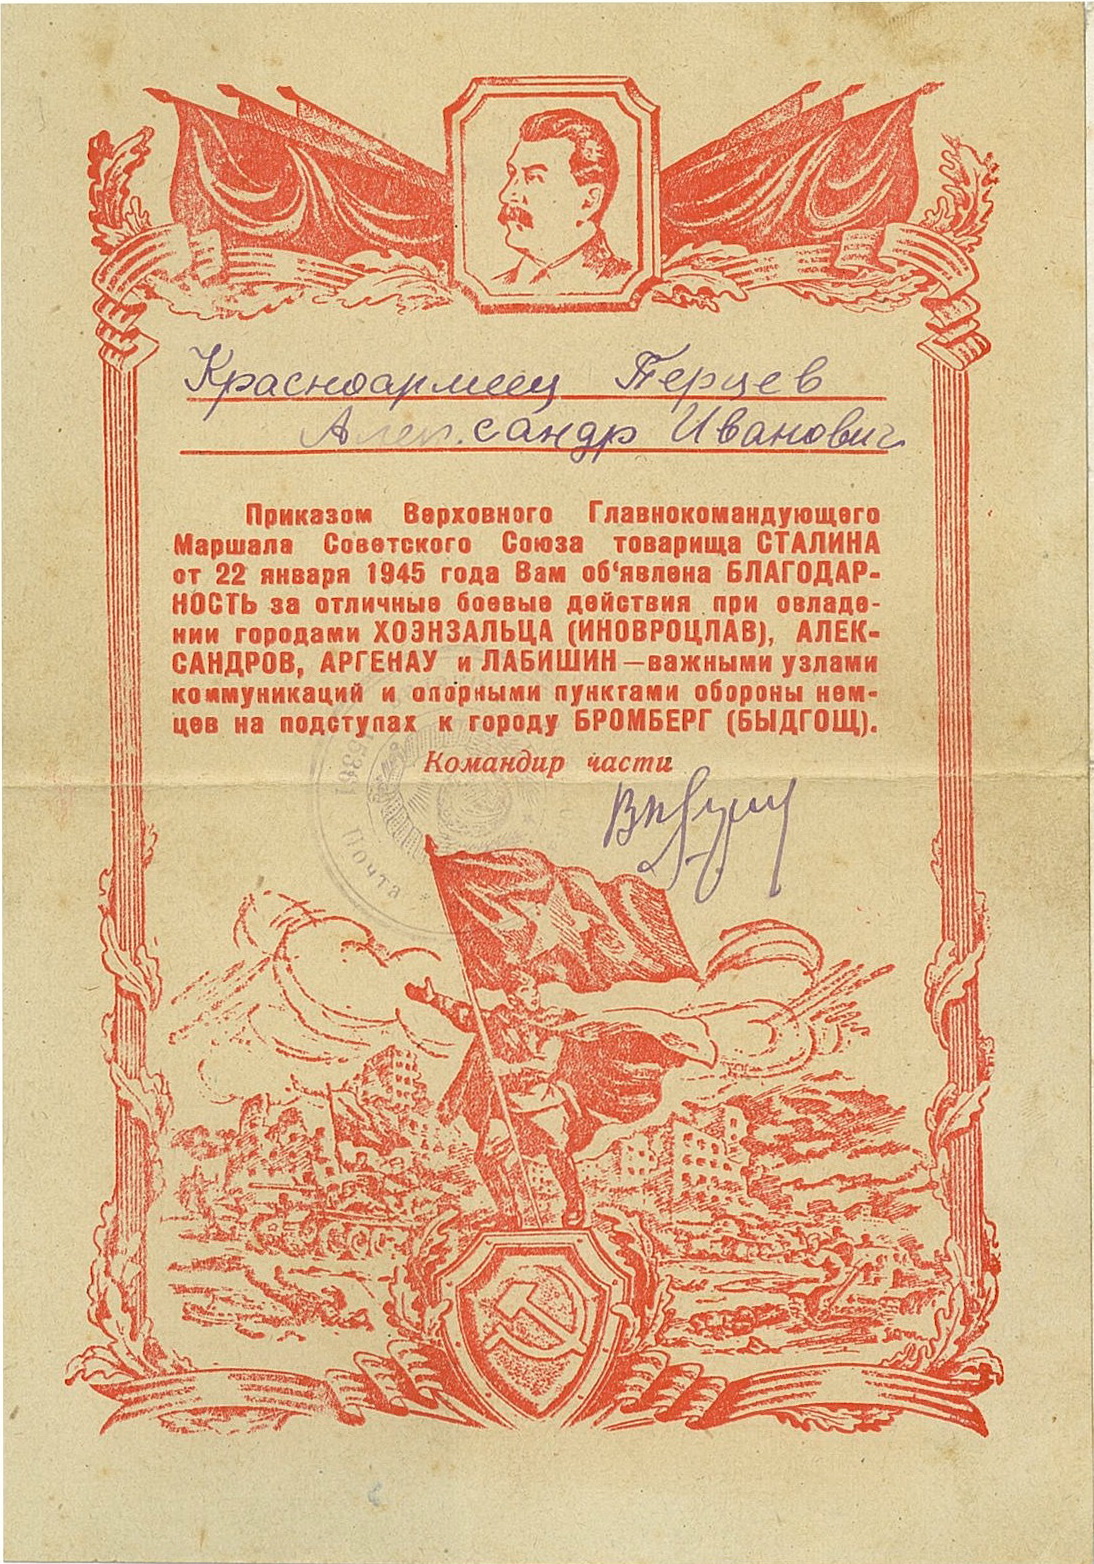 Красноармеец Перцев
Александр Иванович
Приказом Верховного Главнокомандующего
Маршала Советского Союза товарища СТАЛИНА
от 22 января 1945 года Вам об'явлена БЛАГОДАР-
НОСТЬ за отличные боевые действия при овладе-
нии городами ХОЭНЗАЛЬЦА (ИНОВРОЦЛАВ), АЛЕК-
САНДРОВ, АРГЕНАУ и ЛАБИШИН — важными узлами
коммуникаций и опорными пунктами обороны нем-
цев на подступах к городу БРОМБЕРГ (БЫДГОЩ).
Командир части
Почта *